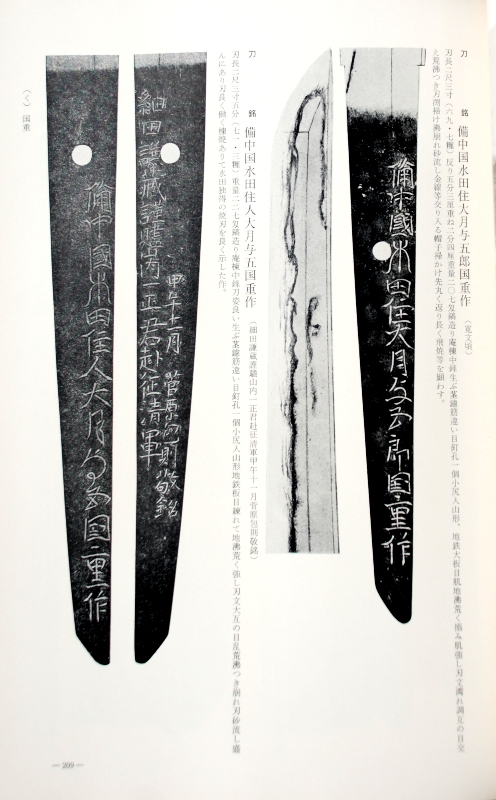 刀　銘　備中国水田住大月与五郎国重作（寛文頃）
刃長二尺三寸（六九・七糎）反り五分三厘重ね二分四厘重量二〇七匁鎬造り庵棟中鋒生ぶ茎鑢筋違い目釘孔一個小尻入山形、地鉄大板目肌地沸荒く揚み肌強し刃文濤れ調互の目交
え荒沸つき刃溯掃け沸崩れ砂流し金線等交り入る帽子掃かけ先丸く返り長く飛焼等を顕わす。
備中國水田住大月与五郎国重作
刀　銘　備中国水田住人大月与五国重作（細田謙蔵源贈山内一正君赴征清軍甲午十一月菅原包則敬銘）
刃長二尺三寸五分（七一・二糎）重量二二七匁鎬造り庵棟中鋒刀姿良い生ぶ茎鑢筋違い目釘孔一個小尻入山形地鉄板目錬れて地沸荒く強し刃文大互の目乱荒沸つき崩れ刃砂流し盛
んにあり刃良く働く棟焼ありて水田独得の焼刃を良く示した作。
細田謙蔵 山内一正君赴征清軍
甲午十一月　菅原包則敬銘
備中國水田住人大月与五国重作
（く）国重
— 209 —